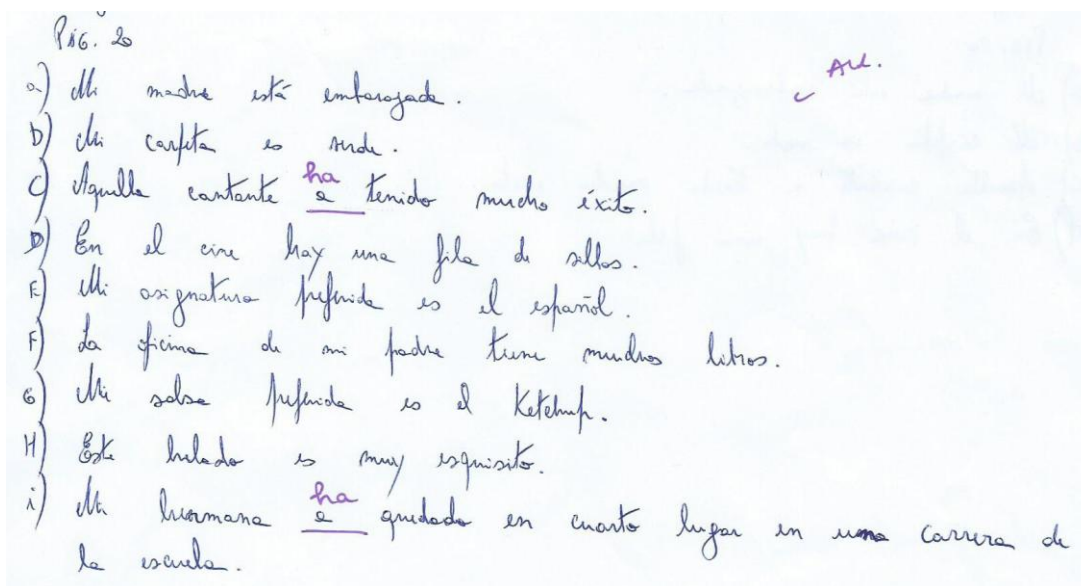 PÁG. 20
Aul.
a) Mi madre está embarazada.
b) Mi carpeta es verde.
c) Aquella cantante a tenido mucho éxito.
ha
D) En el cine hay una fila de sillas.
E) Mi asignatura preferida es el español.
F) La oficina de mi padre tiene muchos libros.
G) Mi salsa preferida es el Ketchup.
H) Este helado es muy esquisito.
i) Mi hermana a quedado en cuarto lugar en una carrera de
ha
la escuela.